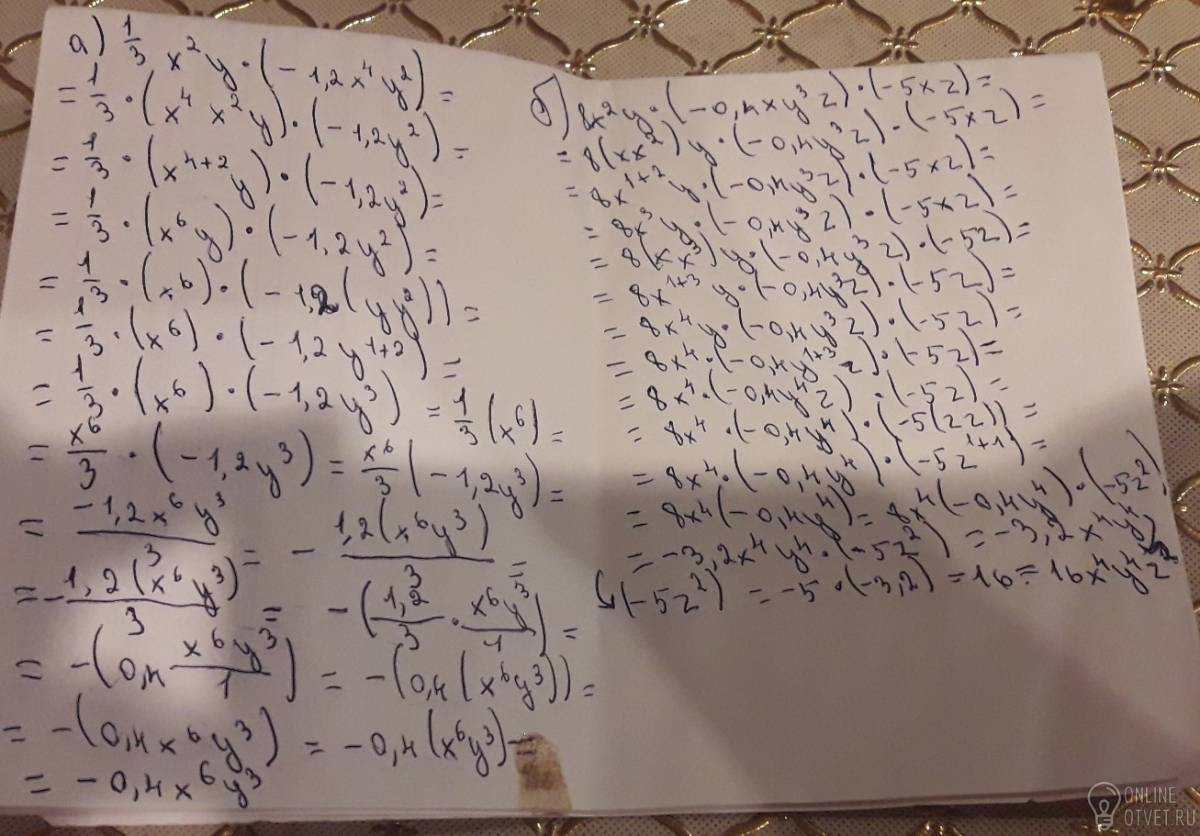 а) 1/3 x² y · (− 1,2x⁴ y²) =
= 1/3 · (x⁴ x² y) · (−1,2y²) =
= 1/3 · (x⁴⁺² y) · (−1,2y²) =
= 1/3 · (x⁶ y) · (−1,2y²) =
= 1/3 · (x⁶) · (−1,2(y y²)) =
= 1/3 · (x⁶) · (−1,2 y¹⁺²) =
= 1/3 · (x⁶) · (−1,2y³) = 1/3 (x⁶) =
= x⁶/3 · (−1,2y³) = x⁶/3 (−1,2y³) =
= −1,2x⁶y³/3 = − 1,2(x⁶y³)/3 =
= − 1,2(x⁶y³)/3 = −(1,2/3 · x⁶y³/1) =
= −(0,4 x⁶y³/1) = −(0,4(x⁶y³)) =
= −(0,4x⁶y³) = −0,4(x⁶y³) =
= −0,4x⁶y³
б) 8x²y · (−0,4xy³z) · (−5xz) =
= 8(xx²)y · (−0,4y³z) · (−5xz) =
= 8x¹⁺²y · (−0,4y³z) · (−5xz) =
= 8x³y · (−0,4y³z) · (−5xz) =
= 8(xx³)y · (−0,4y³z) · (−5z) =
= 8x¹⁺³y · (−0,4y³z) · (−5z) =
= 8x⁴y · (−0,4y³z) · (−5z) =
= 8x⁴ · (−0,4y¹⁺³z) · (−5z) =
= 8x⁴ · (−0,4y⁴z) · (−5z) =
= 8x⁴ · (−0,4y⁴) · (−5(zz)) =
= 8x⁴ · (−0,4y⁴) · (−5z¹⁺¹) =
= 8x⁴(−0,4y⁴) = 8x⁴(−0,4y⁴) · (−5z²)
= −3,2x⁴y⁴ · (−5z²) = −3,2x⁴y⁴
(−5z²) = −5 · (−3,2) = 16 = 16x⁴y⁴z²
ONLINE
OTVET.RU